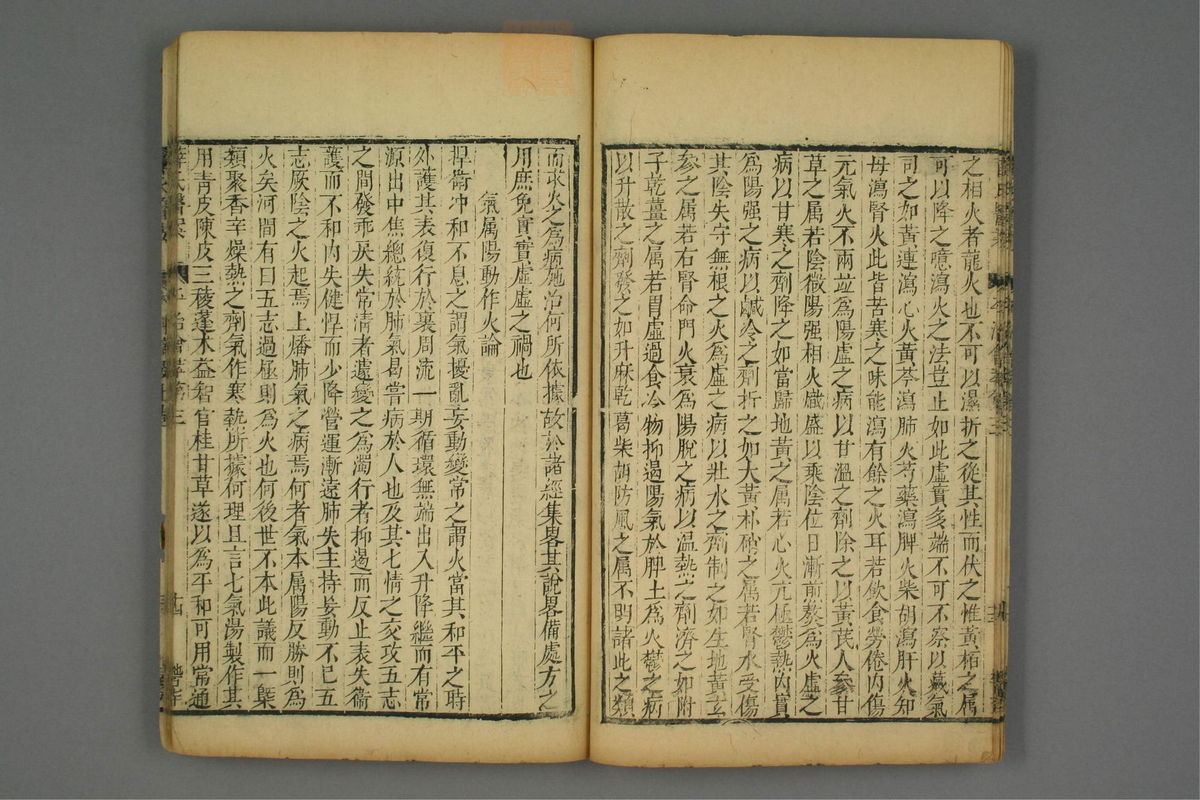 之相火者龍火也不可以濕折之從其性而伏之惟黃栢之属
可以降之噫瀉火之法豈止如此虛實多端不可不察以臟氣
司之如黃連瀉心火黃芩瀉肺火芍藥瀉脾火柴胡瀉肝火知
母瀉腎火此皆苦寒之味能瀉有餘之火耳若飲食勞倦內傷
元氣火不兩立為陽虛之病以甘溫之劑除之以黃芪人參甘
草之属若陰微陽强相火熾盛以乘陰位日漸煎熬為火虛之
病以甘寒之劑降之如當歸地黃之属若心火亢極鬱熱內實
為陽强之病以鹹冷之劑折之如大黃朴硝之属若腎水受傷
其陰失守無根之火為虛之病以壯水之劑制之如生地黃玄
參之属若右腎命門火衰為陽脫之病以温熱之劑濟之如附
子乾薑之属若胃虛過食冷物抑遏陽氣於脾土為火鬱之病
以升散之劑發之如升麻乾葛柴胡防風之属不明諸此之類
而求火之為病施治何所依據故於諸經集畧其說畧備處方之
用庶免實實虛虛之禍也
氣属陽動作火論
捍衛冲和不息之謂氣擾亂妄動變常之謂火當其和平之時
外護其表復行於裏周流一期循環無端出入升降繼而有常
源出中焦總統於肺氣曷嘗病於人也及其七情之交攻五志
之間發乖戾失常清者遽變之為濁行者抑遏而反止表失衞
護而不和內失健悍而少降營運漸遠肺失主持妄動不已五
志厥陰之火起焉上燔肺氣之病焉何者氣本属陽反勝則為
火矣河間有曰五志過極則為火也何後世不本此議而一槩
類聚香辛燥熱之劑氣作寒熱所據何理且言七氣湯製作其
用青皮陳皮三稜蓬朮益智官桂甘草遂以為平和可用常通